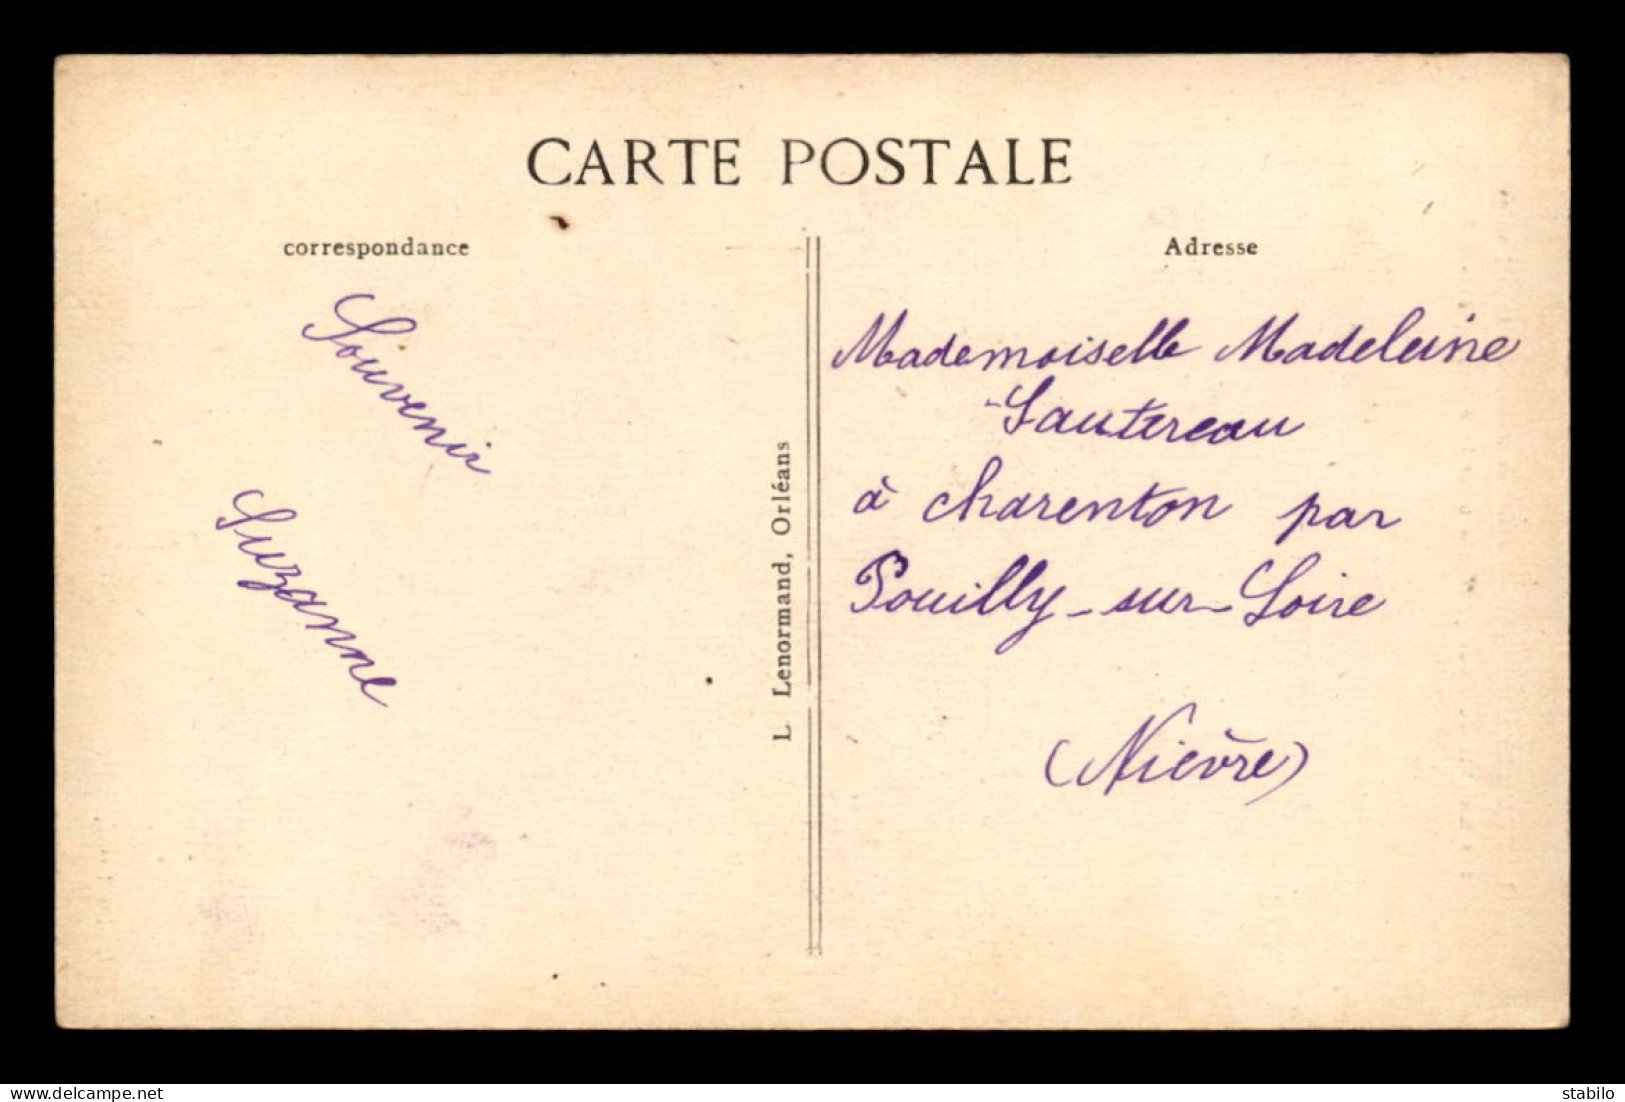 CARTE POSTALE
correspondance
Souvenir
Suzanne
L. Lenormand, Orléans
Adresse
Mademoiselle Madeleine
Sautereau
à charenton par
Pouilly-sur-Loire
(Nièvre)
www.delcampe.net
stabilo